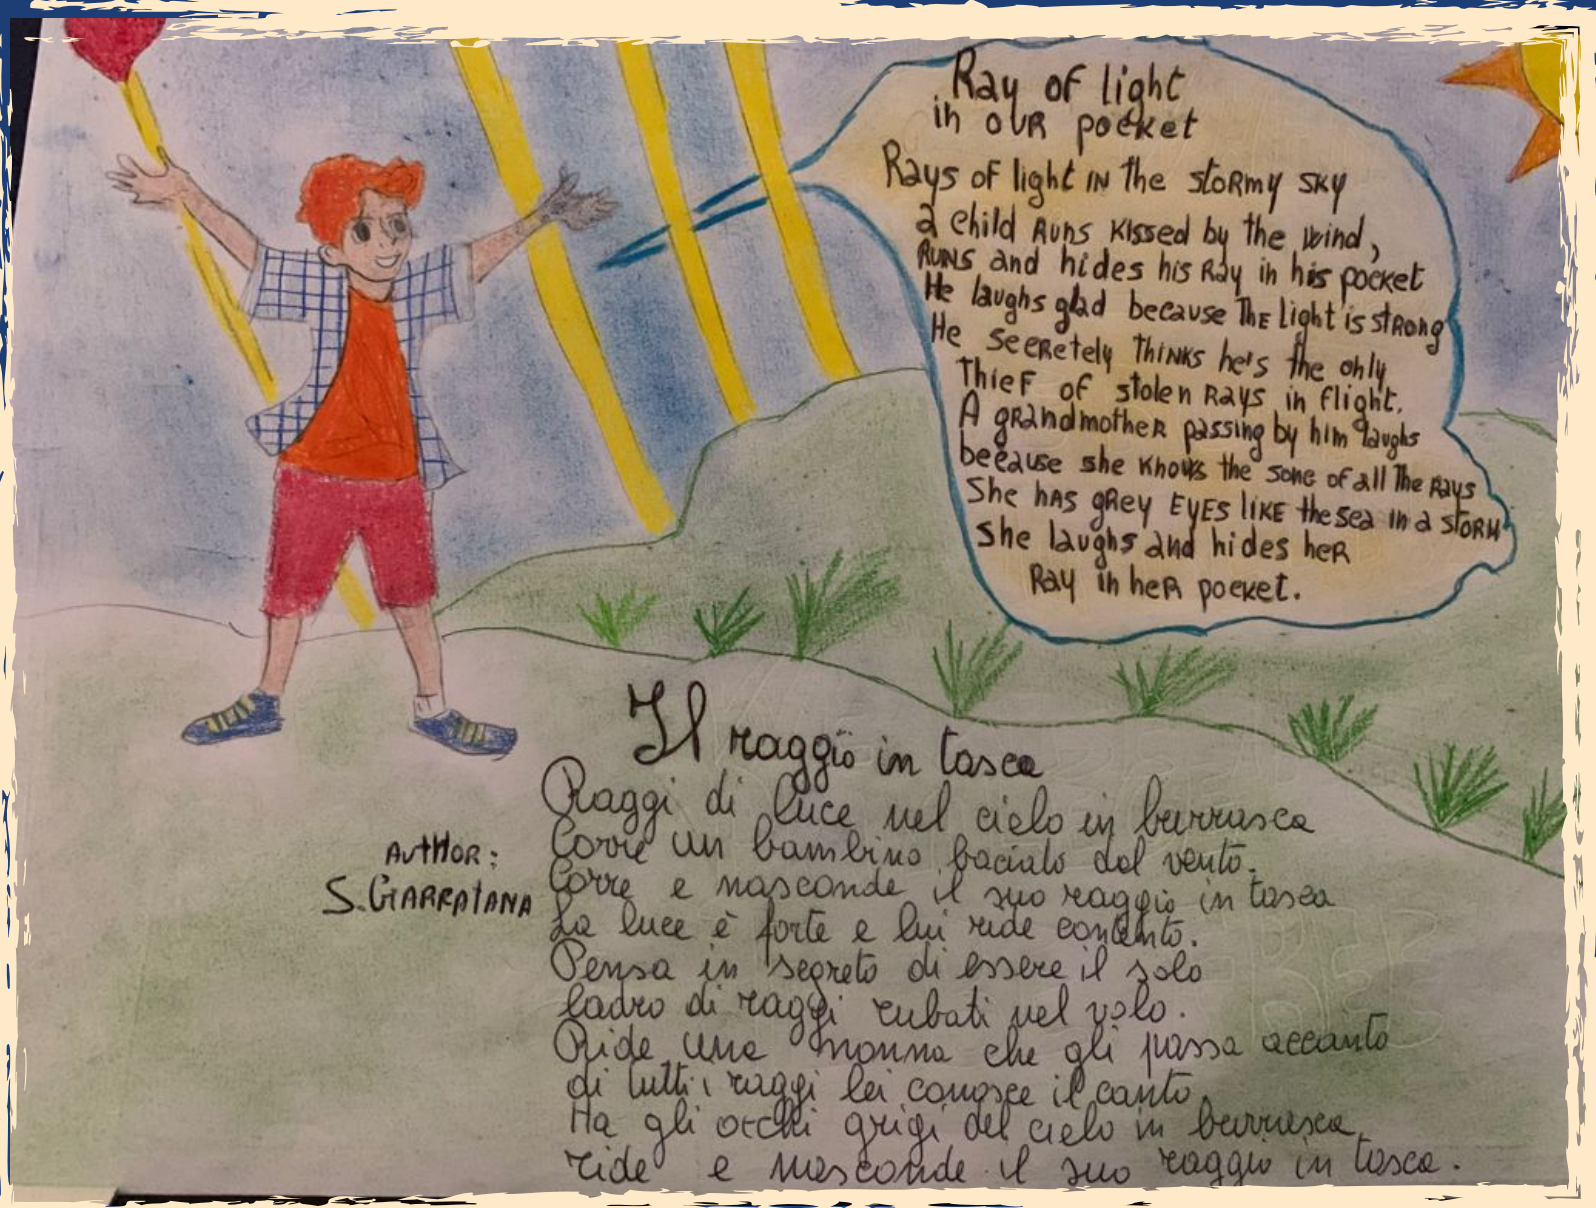 Ray of light
in our pocket
Rays of light in the stormy sky
a child runs kissed by the wind,
Runs and hides his Ray in his pocket
He laughs glad because the light is strong
He secretely thinks he's the only
Thief of stolen rays in flight.
A grandmother passing by him laughs
because she knows the sone of all the rays
She has grey eyes like the sea in a storm
she laughs and hides her
Ray in her pocket.
Il raggio in tasca
Raggi di luce nel cielo in burrasca
Corre un bambino baciato dal vento.
Corre e nasconde il suo raggio in tasca
La luce è forte e lui ride contento.
Pensa in segreto di essere il solo
ladro di raggi rubati nel volo.
Ride una nonna che gli passa accanto
di tutti i raggi lei conosce il canto
Ha gli occhi grigi del cielo in burrasca
ride e nasconde il suo raggio in tasca.
Author:
S. Garratana